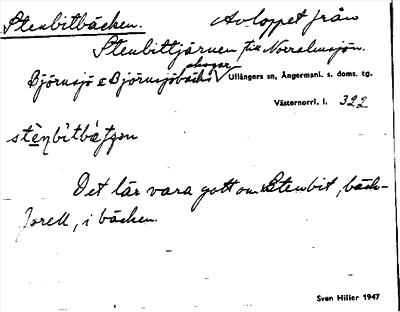 Stenbitbäcken. Avloppet från
Stenbittjärnen till Norralmsjön.
skogar
Björnsjö o Björnsjöbäcks Ullångers sn, Ångermanl. s. doms. tg.
Västernorrl. l. 322
Det lär vara gott om Stenbit, bäck-
forell, i bäcken.
Sven Hiller 1947